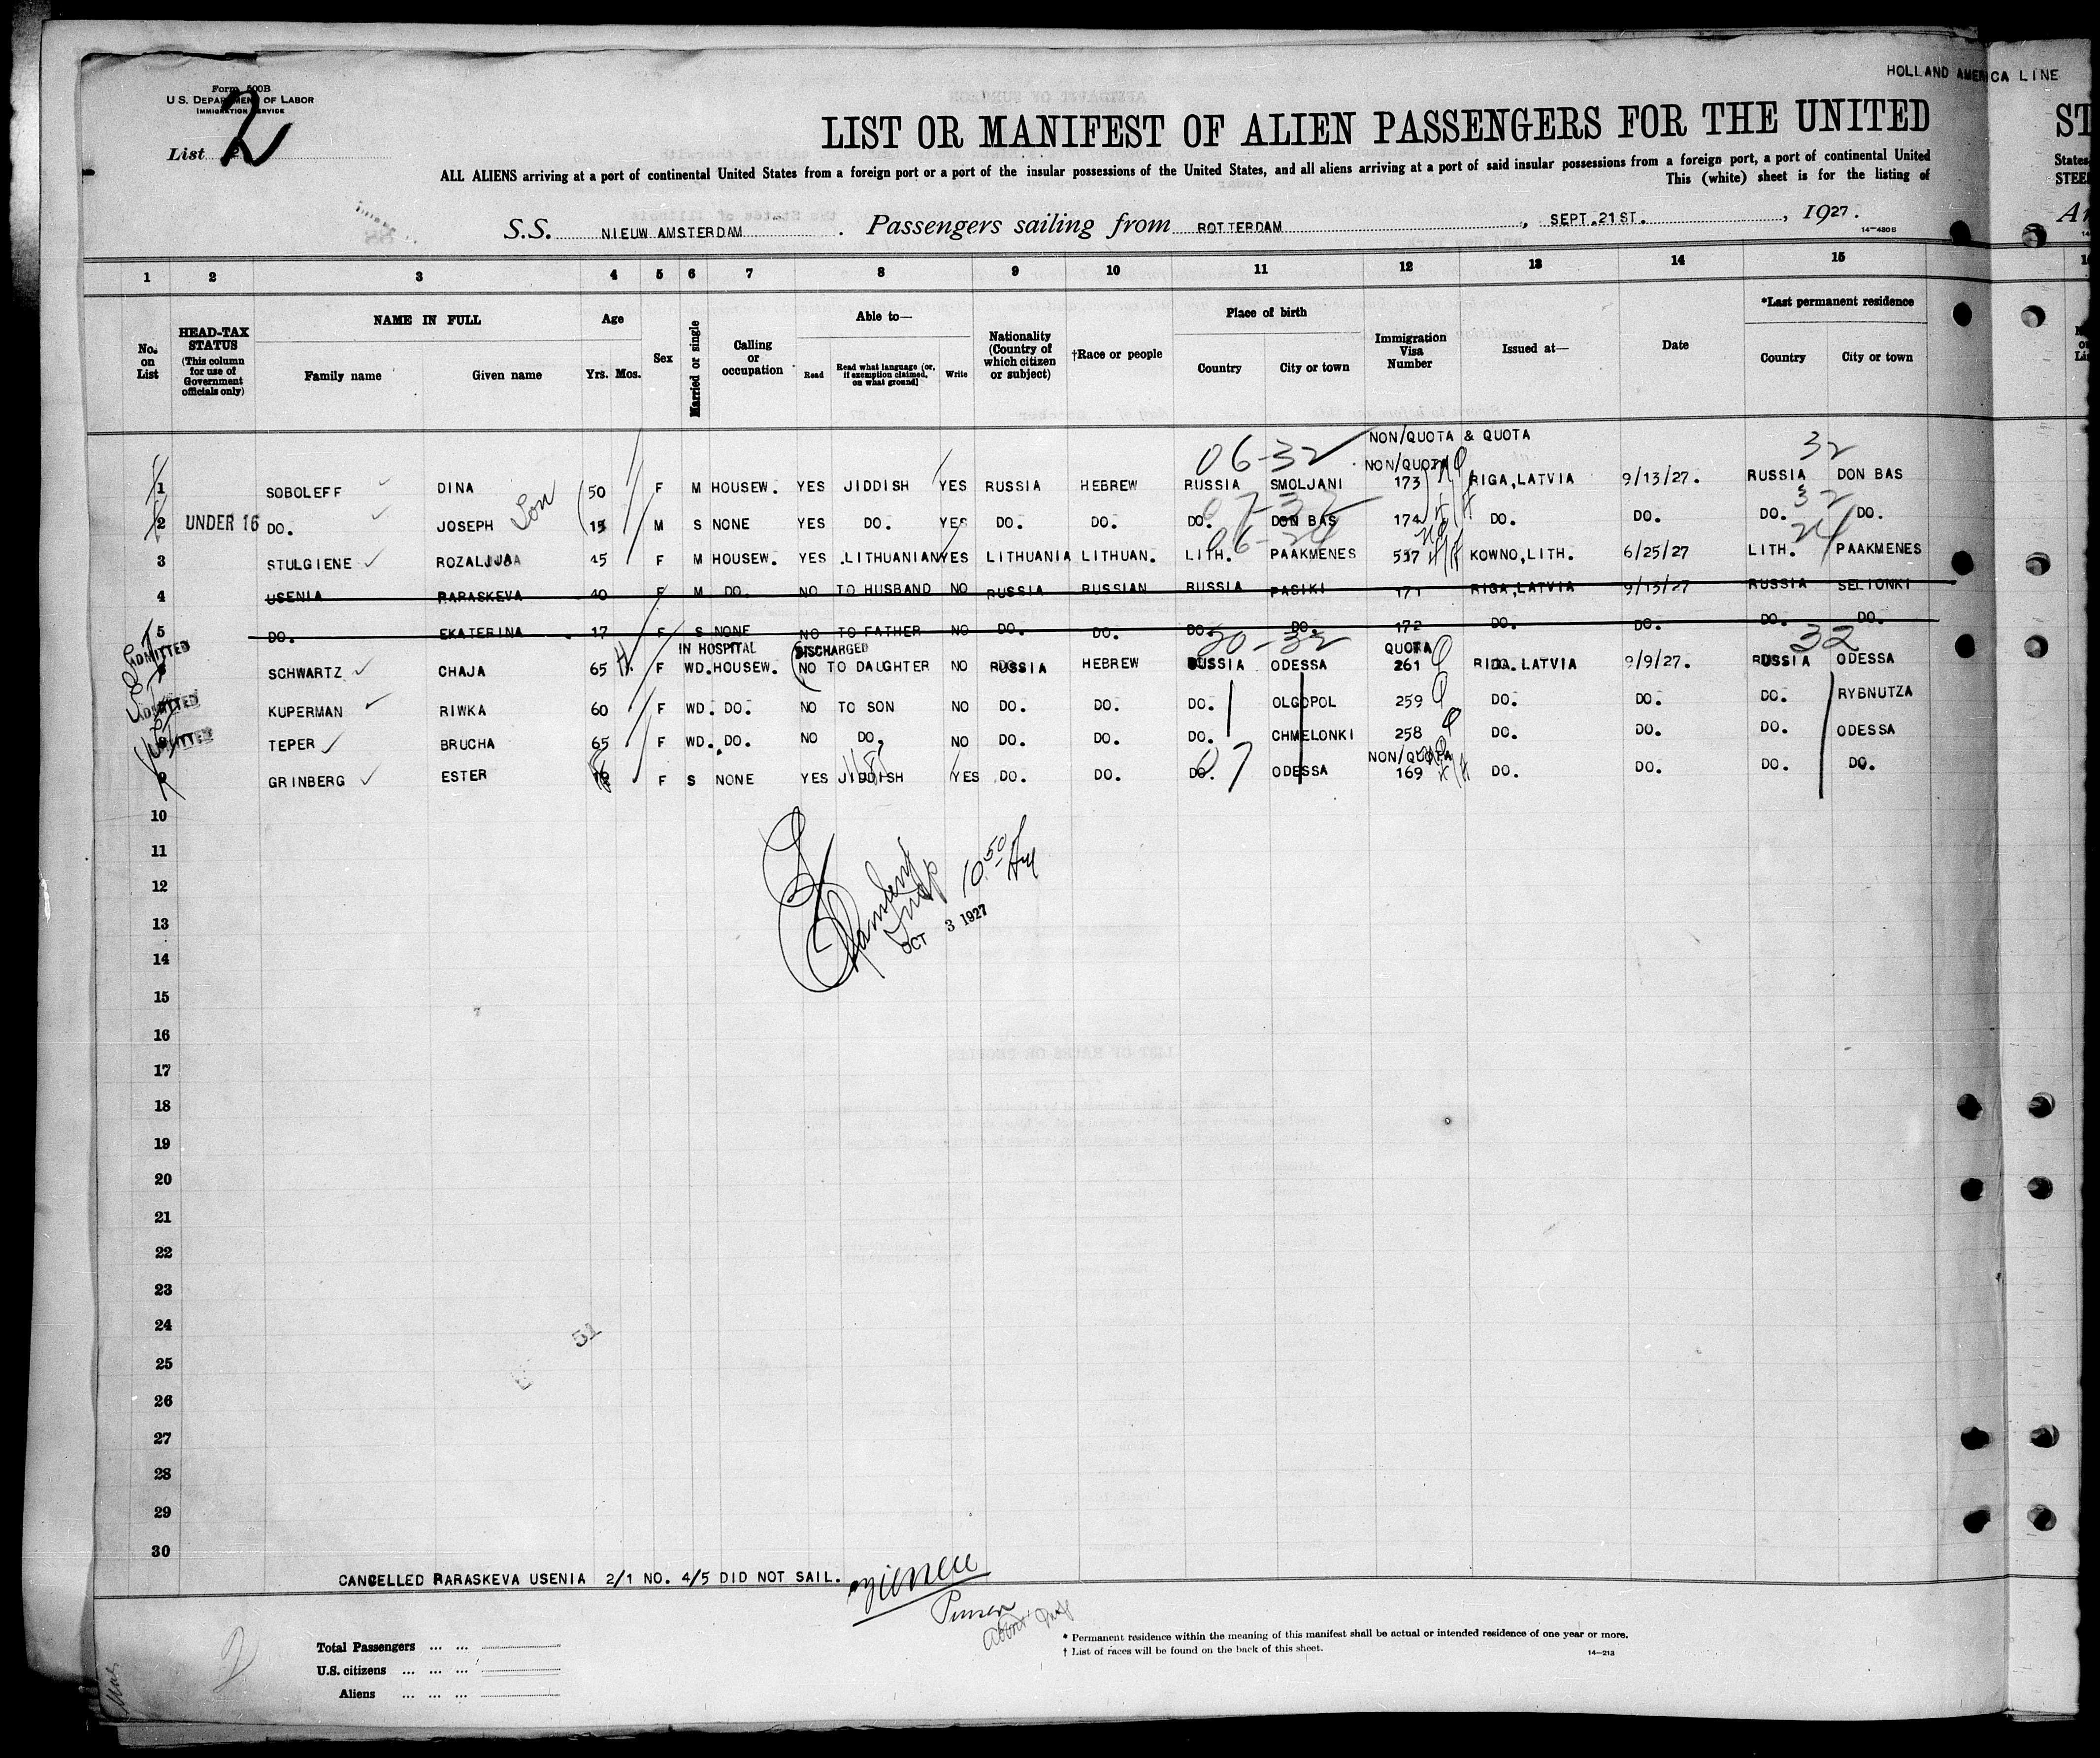 HOLLAND AMERICA LINE
Form 500B
U.S. DEPARTMENT OF LABOR
IMMIGRATION SERVICE
List 2
LIST OR MANIFEST OF ALIEN PASSENGERS FOR THE UNITED
ST
ALL ALIENS arriving at a port of continental United States from a foreign port or a port of the insular possessions of the United States, and all aliens arriving at a port of said insular possessions from a foreign port, a port of continental United
States
This (white) sheet is for the listing of
STEE
S.S. NIEUW AMSTERDAM. Passengers sailing from ROTTERDAM, SEPT.21ST., 1927.
14-480B
1 2 3 4 5 6 7 8 9 10 11 12 13 14 15
No. on List
HEAD-TAX STATUS (This column for use of Government officials only)
NAME IN FULL
Family name Given name
Age
Yrs. Mos.
Sex
Married or single
Calling or occupation
Able to—
Read Read what language (or, if exemption claimed, on what ground) Write
Nationality (Country of which citizen or subject)
†Race or people
Place of birth
Country City or town
Immigration Visa Number
Issued at—
Date
*Last permanent residence
Country City or town
NON/QUOTA & QUOTA
06-32 NON/QUOTA 32
1 SOBOLEFF DINA 50 F M HOUSEW. YES JIDDISH YES RUSSIA HEBREW RUSSIA SMOLJANI 173 RIGA,LATVIA 9/13/27. RUSSIA DON BAS
Son 07-32 32
2 UNDER 16 DO. JOSEPH 15 M S NONE YES DO. YES DO. DO. DO. DON BAS 174 DO. DO. DO. DO.
06-24 24
3 STULGIENE ROZALIJA 45 F M HOUSEW. YES .LITHUANIAN YES LITHUANIA LITHUAN. LITH. PAAKMENES 537 KOWNO,LITH. 6/25/27 LITH. PAAKMENES
4 USENIA RARASKEVA 40 F M DO. NO TO HUSBAND NO RUSSIA RUSSIAN RUSSIA PASIKI 171 RIGA,LATVIA 9/13/27 RUSSIA SELIONKI
5 DO. EKATERINA 17 F S NONE NO TO FATHER NO DO. DO. DO. DO. 172 DO. DO. DO. DO.
ADMITTED IN HOSPITAL DISCHARGED 30-32 QUOTA 32
6 SCHWARTZ CHAJA 65 F WD. HOUSEW. NO TO DAUGHTER NO RUSSIA HEBREW RUSSIA ODESSA 261 RIGA. LATVIA 9/9/27. RUSSIA ODESSA
ADMITTED
7 KUPERMAN RIWKA 60 F WD. DO. NO TO SON NO DO. DO. DO. OLGOPOL 259 DO. DO. DO. RYBNUTZA
ADMITTED
8 TEPER BRUCHA 65 F WD. DO. NO DO. NO DO. DO. DO. CHMELONKI 258 DO. DO. DO. ODESSA
07 NON/QUOTA
9 GRINBERG ESTER F S NONE YES JIDDISH YES DO. DO. DO. ODESSA 169 DO. DO. DO. DO.
10
11
10 50 AM
12
13
OCT 3 1927
14
15
16
17
18
19
20
21
22
23
24
51
25
26
27
28
29
30
CANCELLED RARASKEVA USENIA 2/1 NO. 4/5 DID NOT SAIL.
Purser
Total Passengers ... ...
U.S. citizens ... ... ...
Aliens ... ... ...
* Permanent residence within the meaning of this manifest shall be actual or intended residence of one year or more.
† List of races will be found on the back of this sheet.
14-213
2